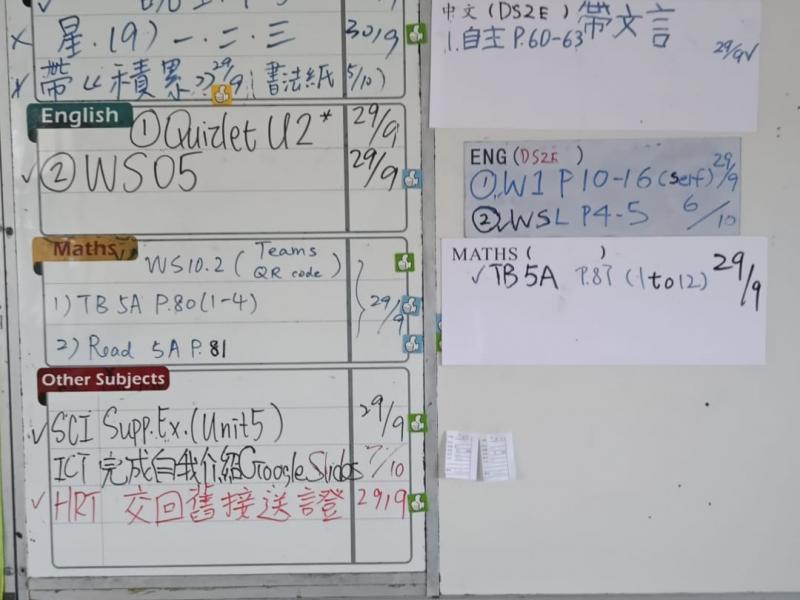 星.(9)一.二.三 30/9
帶《積累》29/9(書法紙 5/10)
English
①Quizlet U2* 29/9
②WS05 29/9
Maths
WS10.2 (Teams QR code)
1) TB 5A P.80(1-4) 29/9
2) Read 5A P.81
Other Subjects
SCI Supp.Ex.(Unit5) 29/9
ICT 完成自我介紹GoogleSlides 7/10
HRT 交回舊接送證 29/9
中文(DS2E) 帶文言
1.自主P.60-63 29/9√
ENG(DS2E )
①W1 P10-16(self) 29/9
②WSL P4-5 6/10
MATHS ( )
√TB 5A P.87 (1to12) 29/9